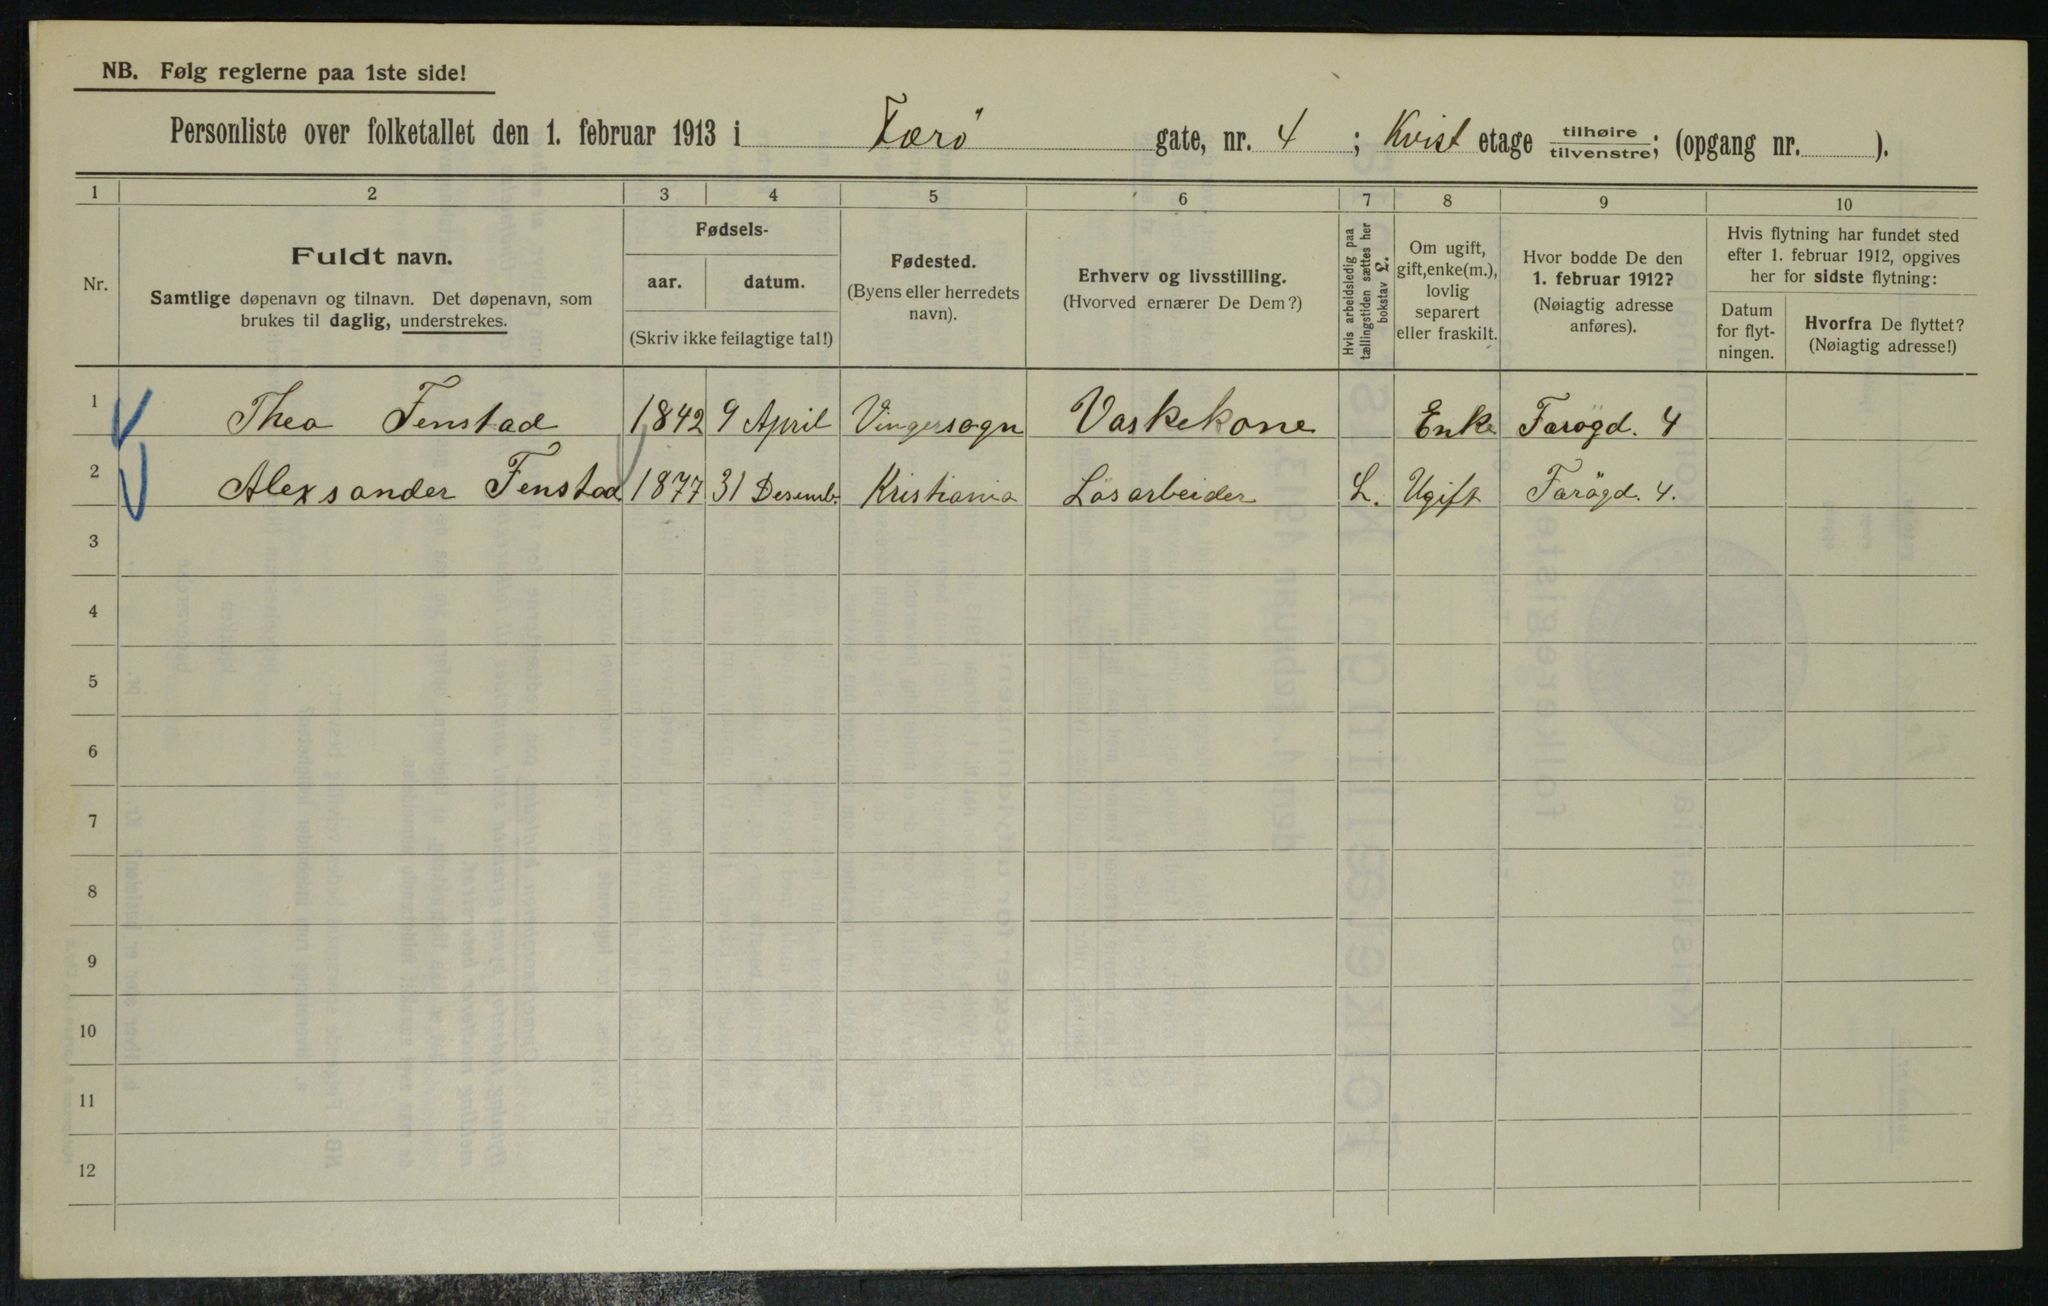 NB. Følg reglerne paa 1ste side!
Personliste over folketallet den 1. februar 1913 i Færö gate, nr. 4 ; Kvist etage tilhøire / tilvenstre; (opgang nr. ).
1 2 3 4 5 6 7 8 9 10
Nr.
Fuldt navn.
Samtlige døpenavn og tilnavn. Det døpenavn, som
brukes til daglig, understrekes.
Fødsels-
aar. datum.
(Skriv ikke feilagtige tal!)
Fødested.
(Byens eller herredets
navn).
Erhverv og livsstilling.
(Hvorved ernærer De Dem?)
Hvis arbeidsledig paa
tællingstiden sættes her
bokstav L.
Om ugift,
gift, enke(m.),
lovlig
separert
eller fraskilt.
Hvor bodde De den
1. februar 1912?
(Nøiagtig adresse
anføres).
Hvis flytning har fundet sted
efter 1. februar 1912, opgives
her for sidste flytning:
Datum
for flyt-
ningen.
Hvorfra De flyttet?
(Nøiagtig adresse!)
1 Thea Fenstad 1842 9 April Vingersogn Vaskekone Enke Færögd. 4
2 Alexsander Fenstad 1877 31 Desemb. Kristiania Lösarbeider L. Ugift Færögd. 4.
3
4
5
6
7
8
9
10
11
12